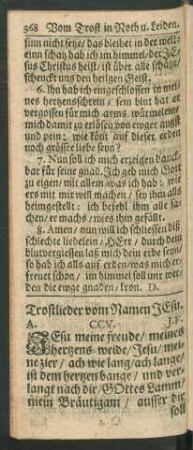 368 Vom Trost in Noth u. Leiden.
sinn nicht setze/ das bleibet in der welt:
einen schatz hab ich im himmel/ der JE-
sus Christus heist, ist über alle schätze/
schenckt uns den heilgen Geist.
6. Ihn hab ich eingeschlossen in mei-
nes hertzensschrein/ sein blut hat er
vergossen für mich armes würmelein/
mich damit zu erlösen von ewger angst
und pein; wie könt auf dieser erden
noch grössre liebe seyn?
7. Nun soll ich mich erzeigen danck-
bar für seine gnad. Ich geb mich Gott
zu eigen/ mit allem/ was ich hab: wie
ers mit mir will machen/ sey ihm alls
heimgestellt: ich befehl ihm all mein sa-
chen/ er machs/ wies ihm gefällt.
8. Amen/ nun will ich schliessen diß
schlechte liedelein/ HErr/ durch dein
blutvergiessen laß mich dein erbe seyn/
so hab ich alls auf erden/ was mich er-
freuet schon/ im himmel soll mir wer-
den die ewge gnaden-kron. D.
Trostlieder vom Namen JEsu.
A. CCV. J. F.
JEsu meine freude/ meines
hertzens weide/ Jesu/ mei-
ne zier/ ach wie lang/ ach lange/
ist dem hertzen bange/ und ver-
langt nach dir/ GOttes Lamm/
mein Bräutigam/ ausser dir
soll